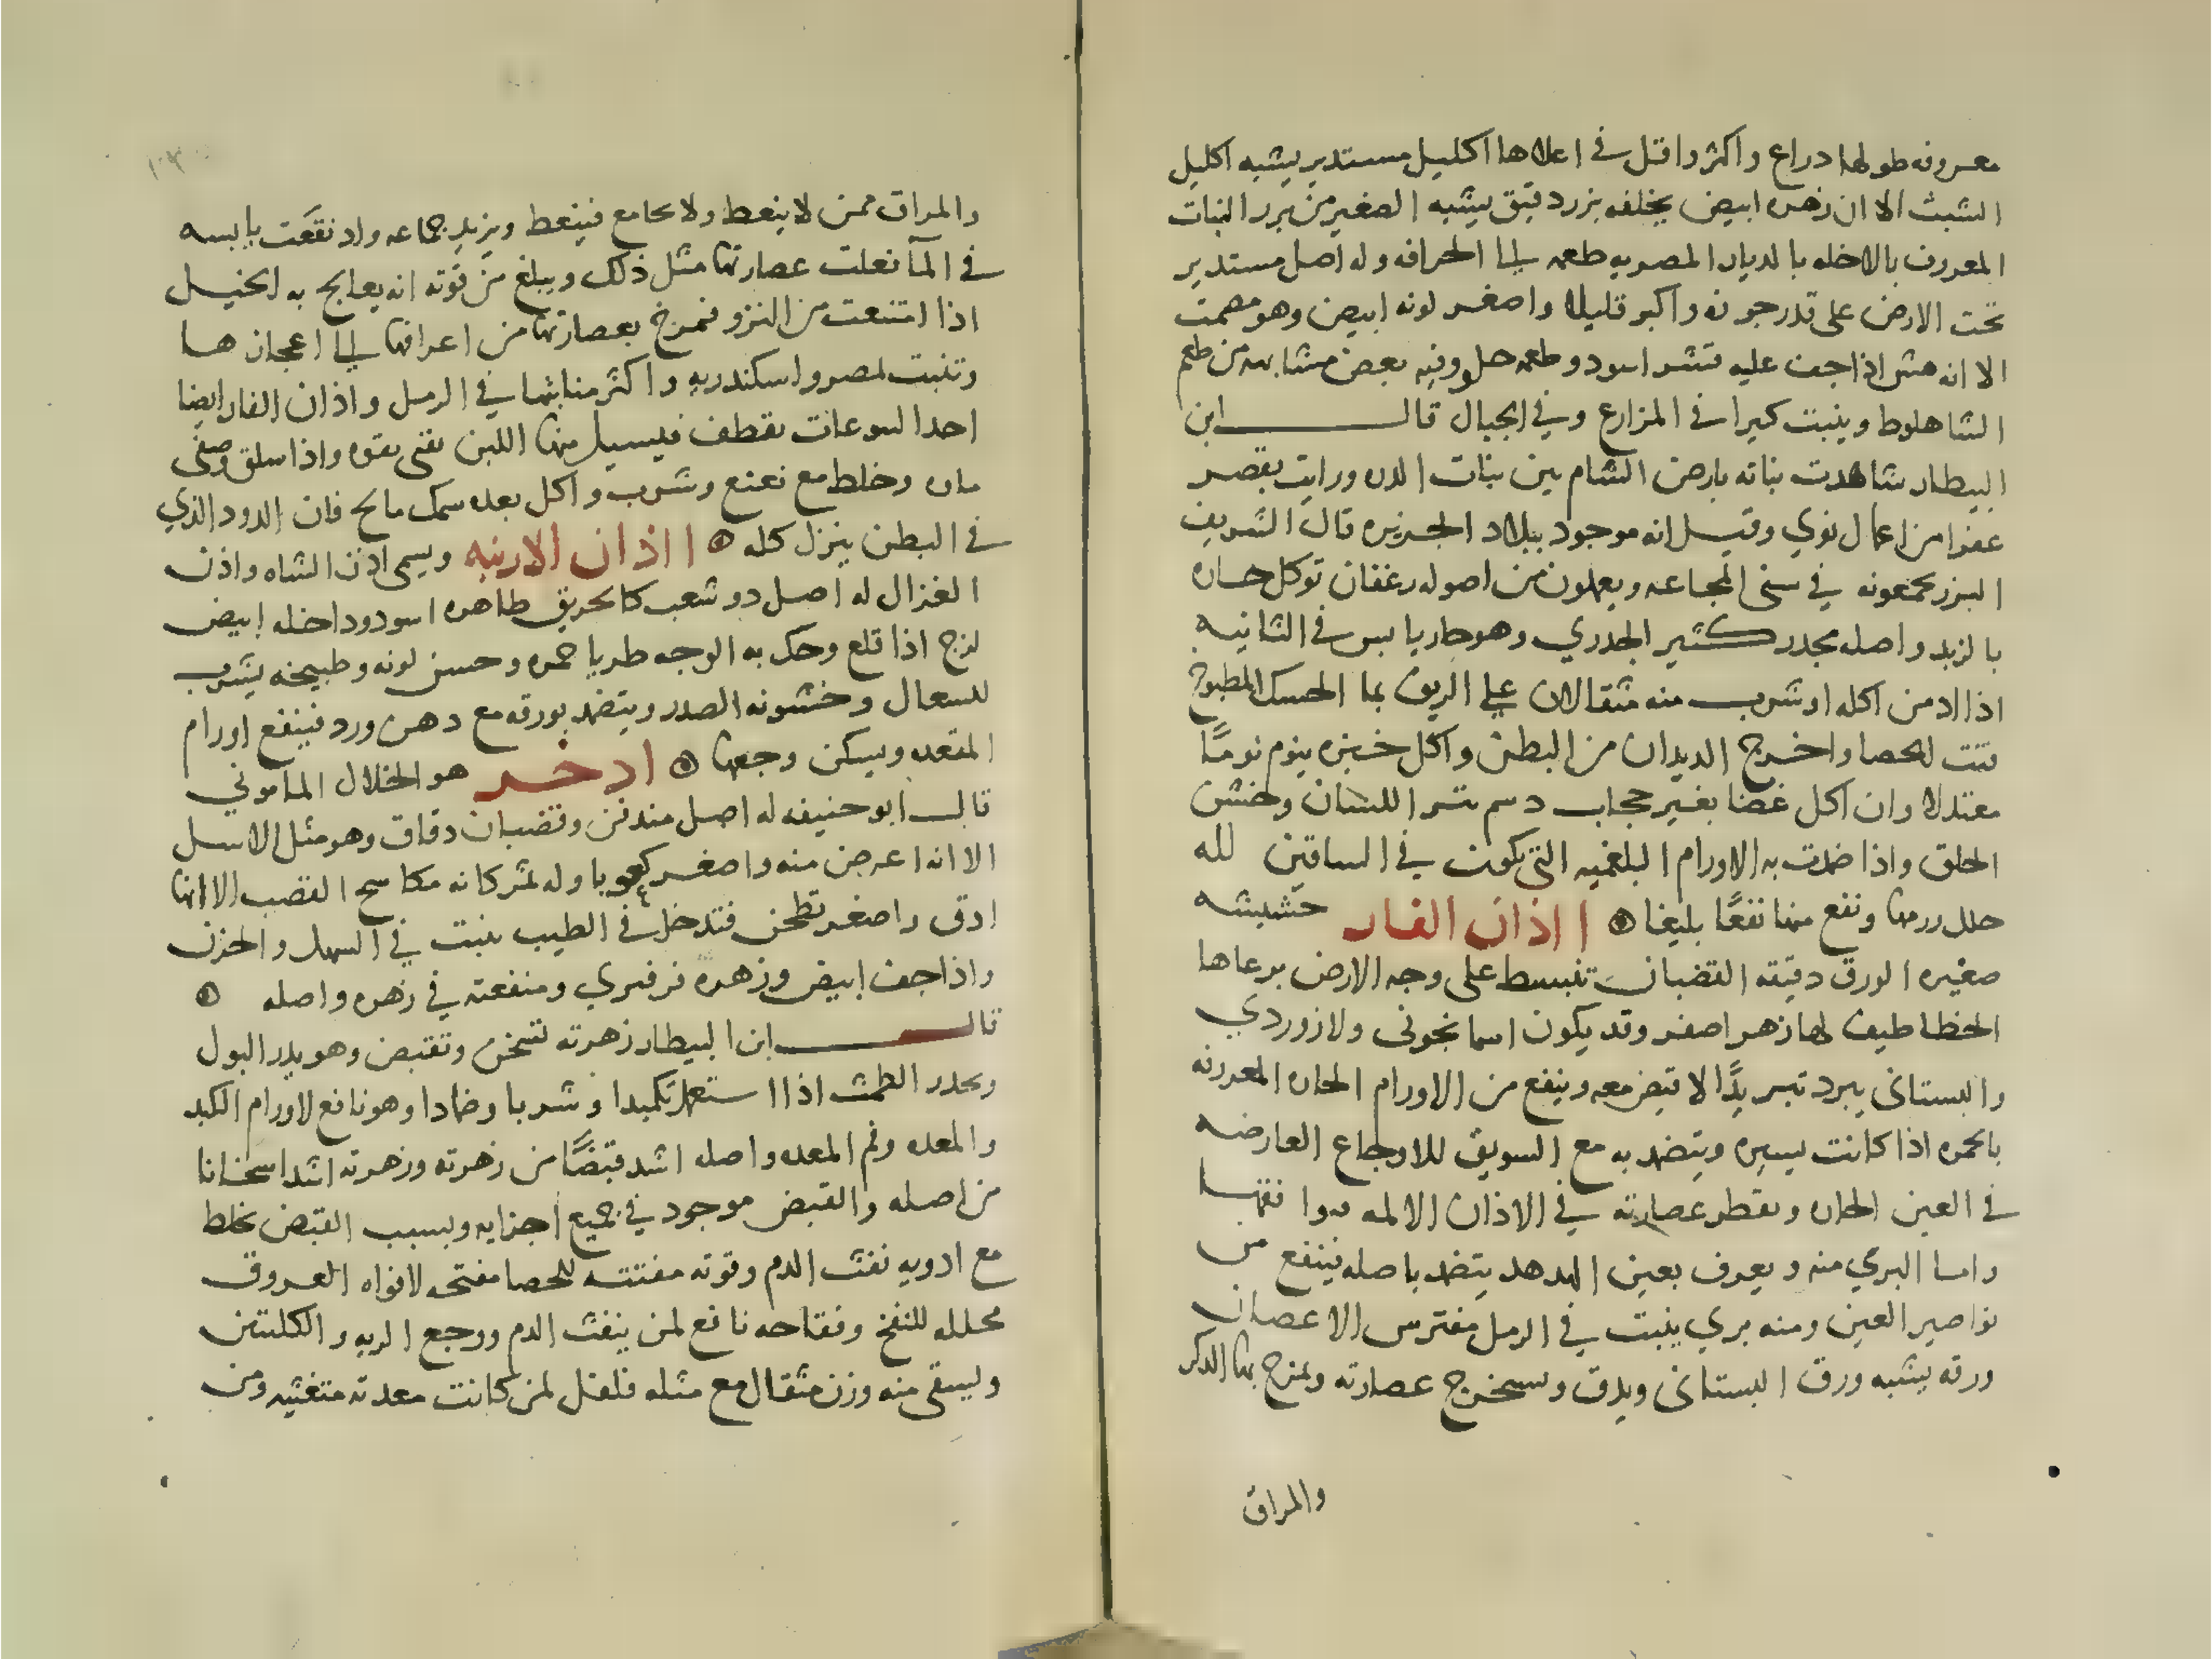 معروفه طولها دراع واكثر واقل في اعلاها اكليل مستدير يشبه اكليل
الشبث الا ان زهره ابيض يخلفه بزر دقيق يشبه الصغير من بزر النبات
المعروف بالاخله بالديار المصريه طعمه الى الحرافه وله اصل مستدير
تحت الارض على قدر جوزه واكبر قليلا واصغر لونه ابيض وهو مصمت
الا انه هش اذا جف عليه قشر اسود وطعمه حلو وفيه بعض مشابهه من طعم
الشاهلوط وينبت كيرا في المزارع وفي الجبال قال ابن
البيطار شاهدت نباته بارض الشام بين نبات الدره ورايت بقصر
عفرا من اعمال نوي وقيل انه موجود ببلاد الجزيره قال الشريف
البزر يجمعونه في سنى المجاعه ويعملون من اصوله رغفان توكل حاره
بالزبد واصله مجدر كثير الجدري وهو حار يابس في الثانيه
اذا ادمن اكله او شرب منه مثقالان على الريق بما الحسك المطبوخ
فتت الحصا واخرج الديدان من البطن واكل خبزه ينوم نومًا
معتدلا وان اكل غضا بغير حجاب دسم اللسان وخشن
الحلق واذا ضمدت به الاورام البلغميه التي تكون في الساقين لله
حلل ورمها ونفع منها نفعًا بليغا ۞ ااذان الفار حشيشه
صغيره الورق دقيقه القضبان تنبسط على وجه الارض يرعاها
الخطاطيف لها زهر اصفر وقد يكون اسمانجونى ولازوردي
والبستانى يبرد تبريدًا لا قبض معه وينفع من الاورام الحاره المعروفه
بالحمره اذا كانت يسيره ويتضمد به مع السويق للاوجاع العارضه
في العين الحاره ويقطر عصارته في الاذان الالمه
واما البري منه ويعرف بعين الهدهد يتضمد باصله فينفع من
نواصير العين ومنه بري ينبت في الرمل مفترش الاغصان
ورقه يشبه ورق البستانى ويدق ويستخرج عصارته ويمزج بها الذكر
والمراق
والمراق ممن لا ينعظ ولا يجامع فينعظ ويزيد جماعه واد نقعت يابسه
في المآ فعلت عصارتها مثل ذلك ويبلغ من قوته انه يعالج به الخيل
اذا امتنعت من النزو فتمرخ بعصارتها من اعرافها الى اعجازها
وتنبت بمصر واسكندريه واكثر منابتها في الرمل واذان الفار ايضا
احد اليتوعات يقطف فيسيل منها اللبن يقى بقوه واذا سلق وصفى
ماه وخلط مع نعنع وشرب واكل بعده سمك مالح فان الدود الذي
في البطن ينزل كله ۞ ااذان الارنبه ويسمى اذن الشاه واذن
الغزال له اصل دو شعب كالحريق ظاهره اسود وداخله ابيض
لزج اذا قلع وحك به الوجه طريا حمره وحسن لونه وطبيخه يشرب
للسعال وخشونه الصدر ويتضمد بورقه مع دهن ورد فينفع اورام
المقعده ويسكن وجعها ۞ ادخر هو الخلال الماموني
قال ابو حنيفه له اصل مندفن وقضبان دقاق وهو مثل الاسل
الا انه اعرض منه واصغر كعوبا وله ثمر كانه مكاسح القصب الا انها
ادق واصغر تطحن فتدخل في الطيب ينبت في السهل والحزن
واذا جف ابيض وزهره فرفيري ومنفعته في زهره واصله ۞
قال ابن البيطار زهرته تسخن وتقبض وهو يدر البول
ويحدر الطمث اذا استعمل تكميدا وشربا وضمادا وهو نافع لاورام الكبد
والمعده وفم المعده واصله اشد قبضًا من زهرته وزهرته اشد اسخانا
من اصله والقبض موجود في جميع اجزايه وبسبب القبض يخلط
مع ادويه نفث الدم وقوته مفتته للحصا مفتحه لافواه العروق
محلله للنفخ وفقاحه نافع لمن ينفث الدم ووجع الريه والكليتين
ويسقى منه وزن مثقال مع مثله فلفل لمن كانت معدته متغثيه ومن